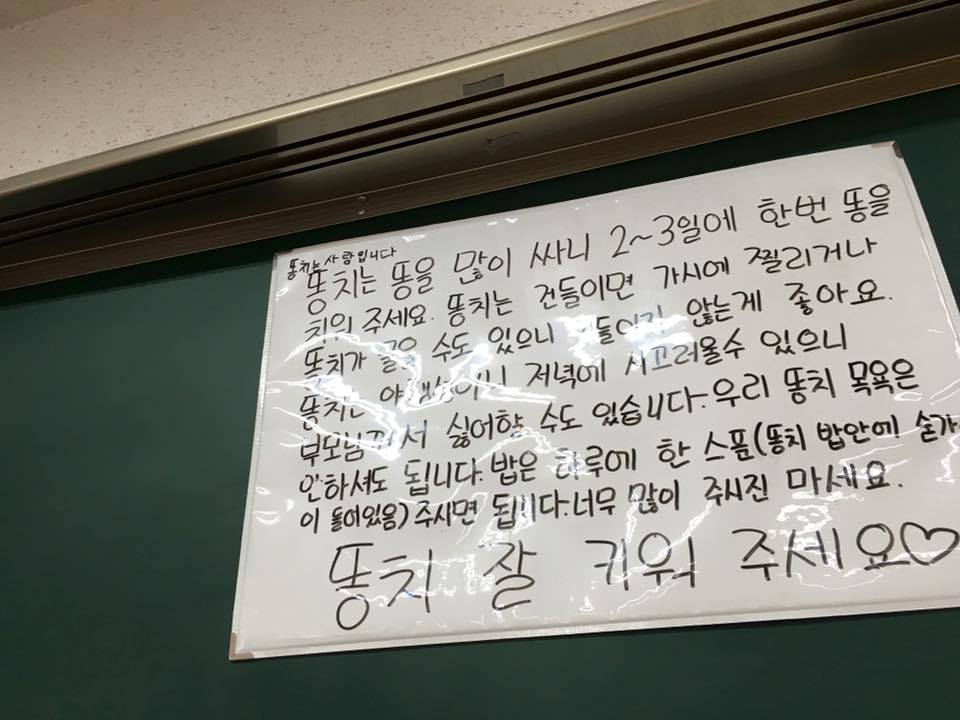 똥치는 사람입니다
똥치는 똥을 많이 싸니 2~3일에 한번 똥을
치워 주세요. 똥치는 건들이면 가시에 찔리거나
똥치가 물을 수도 있으니 건들이지 않는게 좋아요.
똥치는 야행성이니 저녁에 시끄러울수 있으니
부모님께서 싫어할 수도 있습니다. 우리 똥치 목욕은
안하셔도 됩니다. 밥은 하루에 한 스푼(똥치 밥안에 숟가
이 들어있음) 주시면 됩니다. 너무 많이 주시진 마세요.
똥치 잘 키워 주세요♡